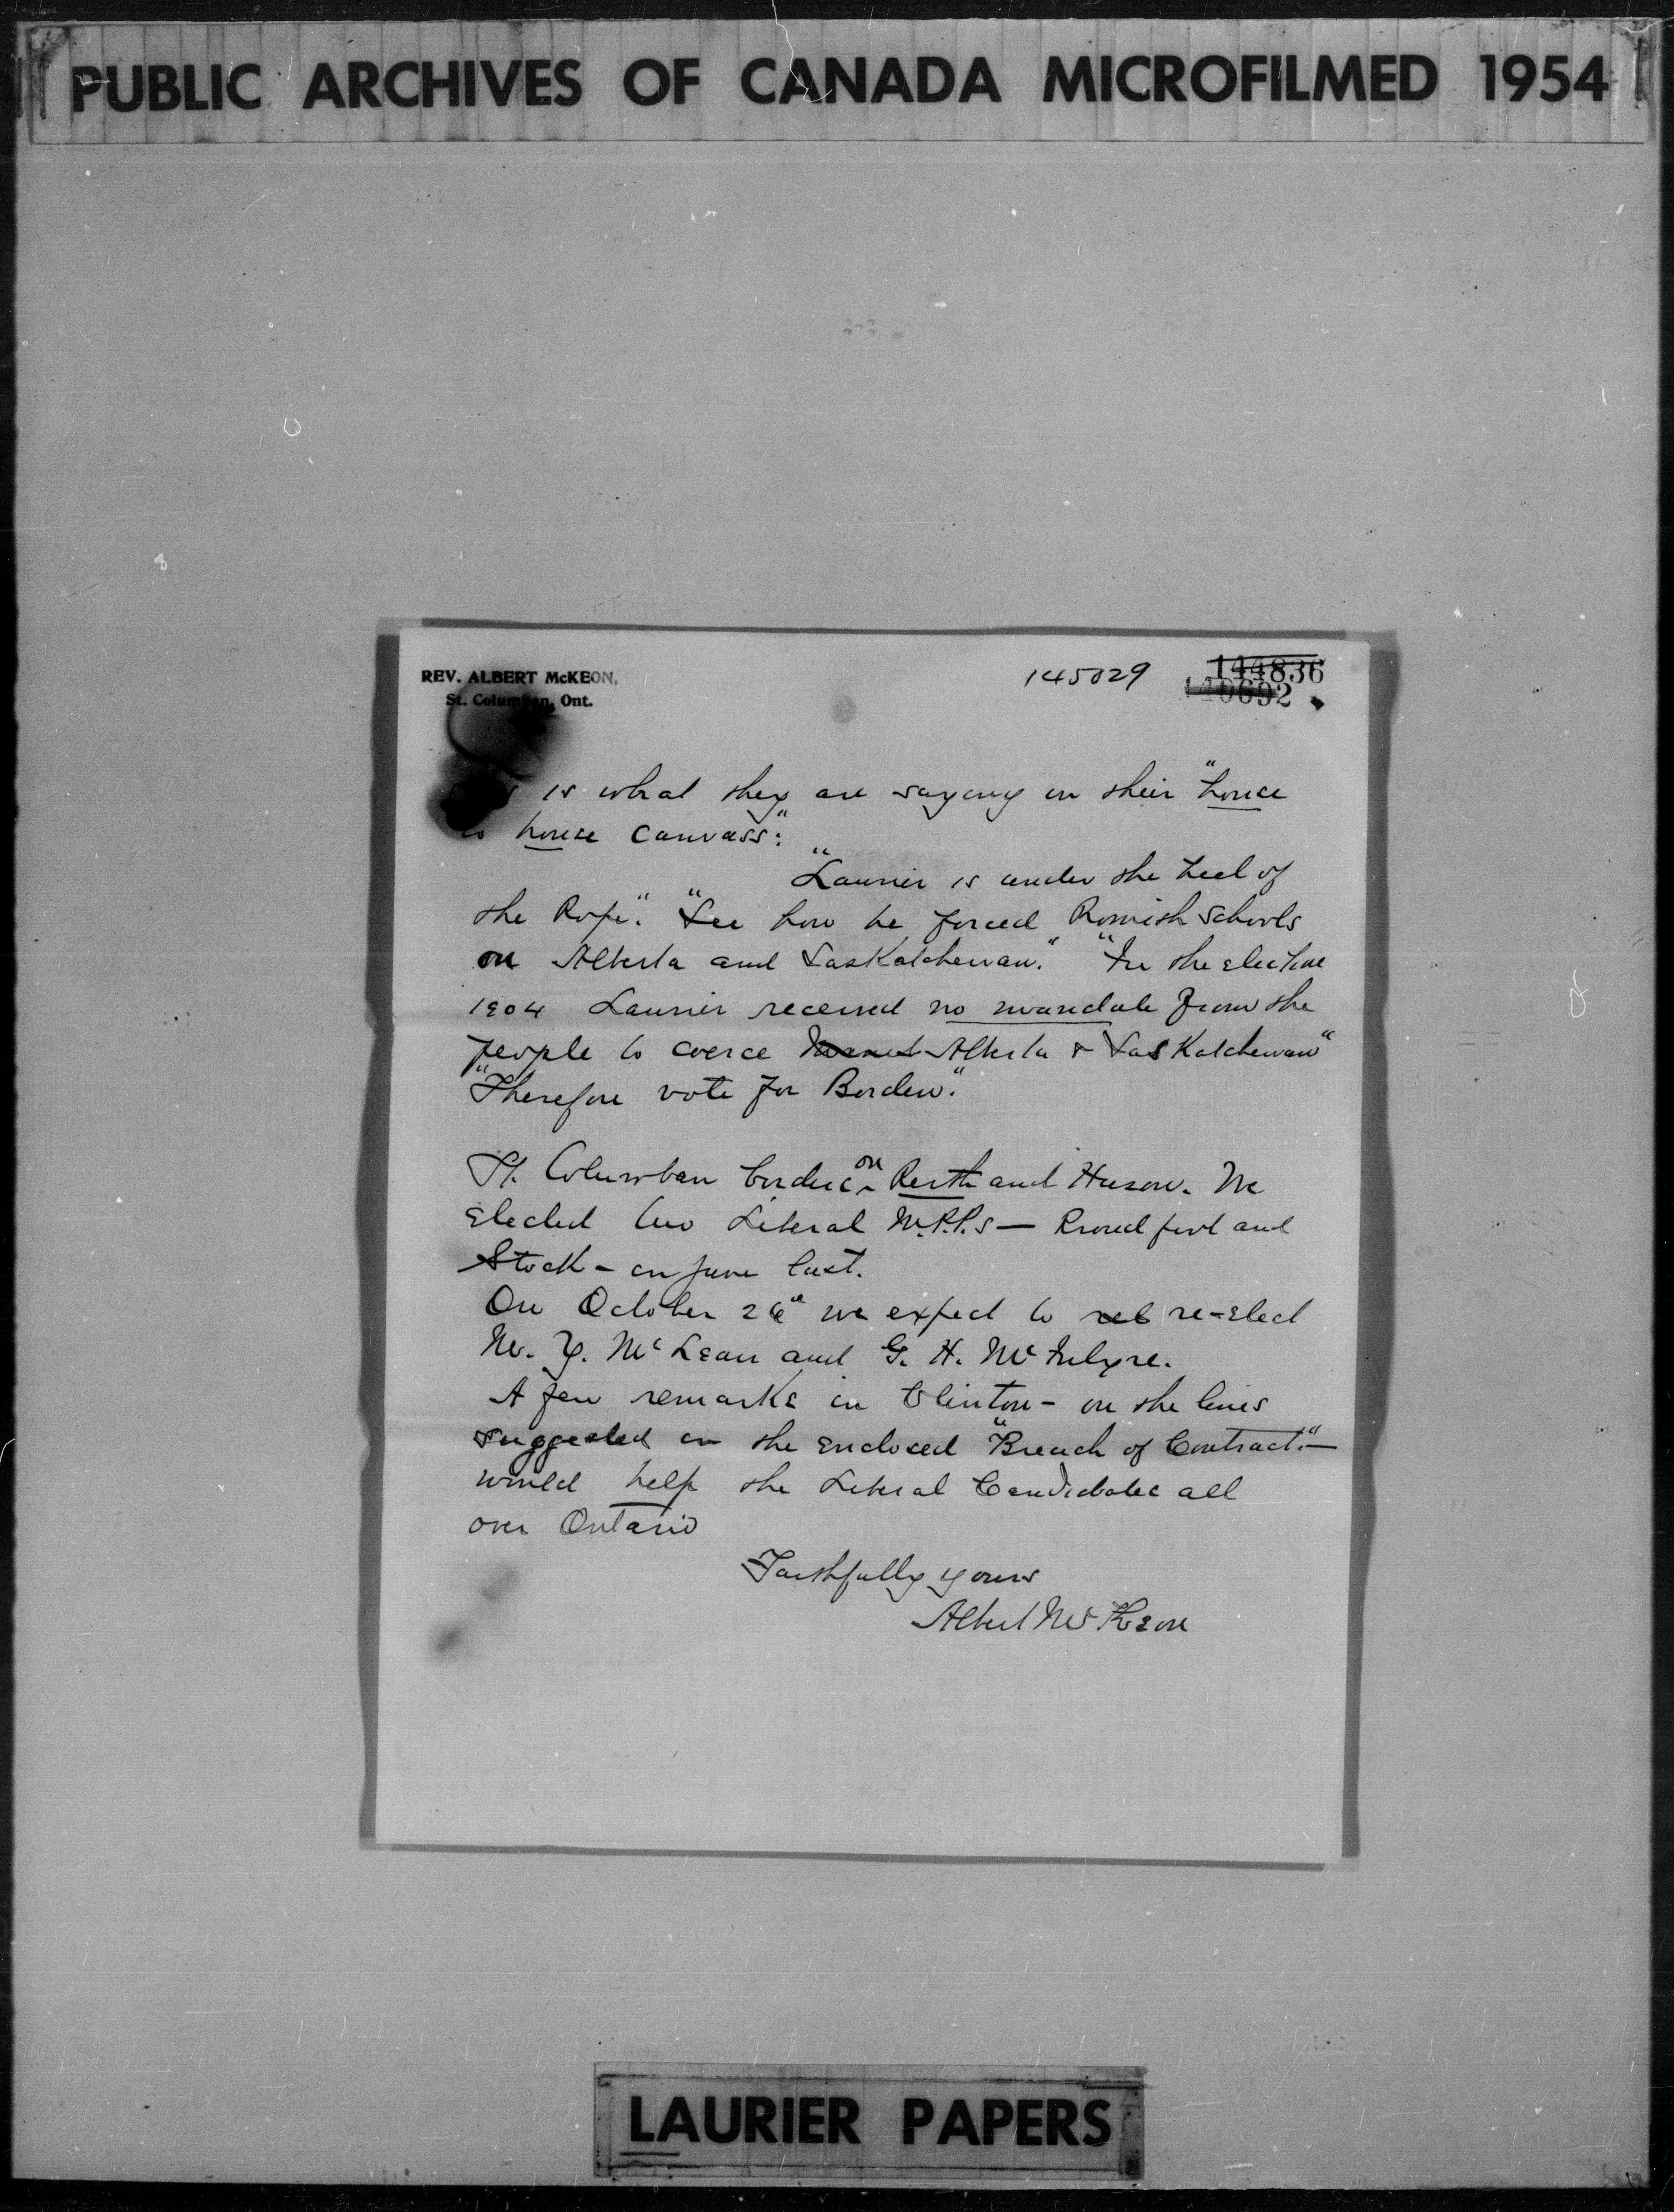 PUBLIC ARCHIVES OF CANADA MICROFILMED 1954
REV. ALBERT McKEON,
St. Columban, Ont.
145029
144836
is what they are saying in their "house
to house canvass:"
"Laurier is under the heel of
the Pope". "See how he forced Romish schools
on Alberta and Saskatchewan." "In the election
1904 Laurier received no mandate from the
people to coerce Alberta & Saskatchewan"
"Therefore vote for Borden."
St. Columban borders on Perth and Huron. We
elected two Liberal M.P.P.s — Proudfoot and
Stock - in June last.
On October 26th we expect to reel re-elect
M. Y. McLean and G. H. McIntyre.
A few remarks in Clinton - on the lines
suggested in the enclosed "Breach of Contract." —
would help the Liberal Candidates all
over Ontario
Faithfully yours
Albert McKeon
LAURIER PAPERS